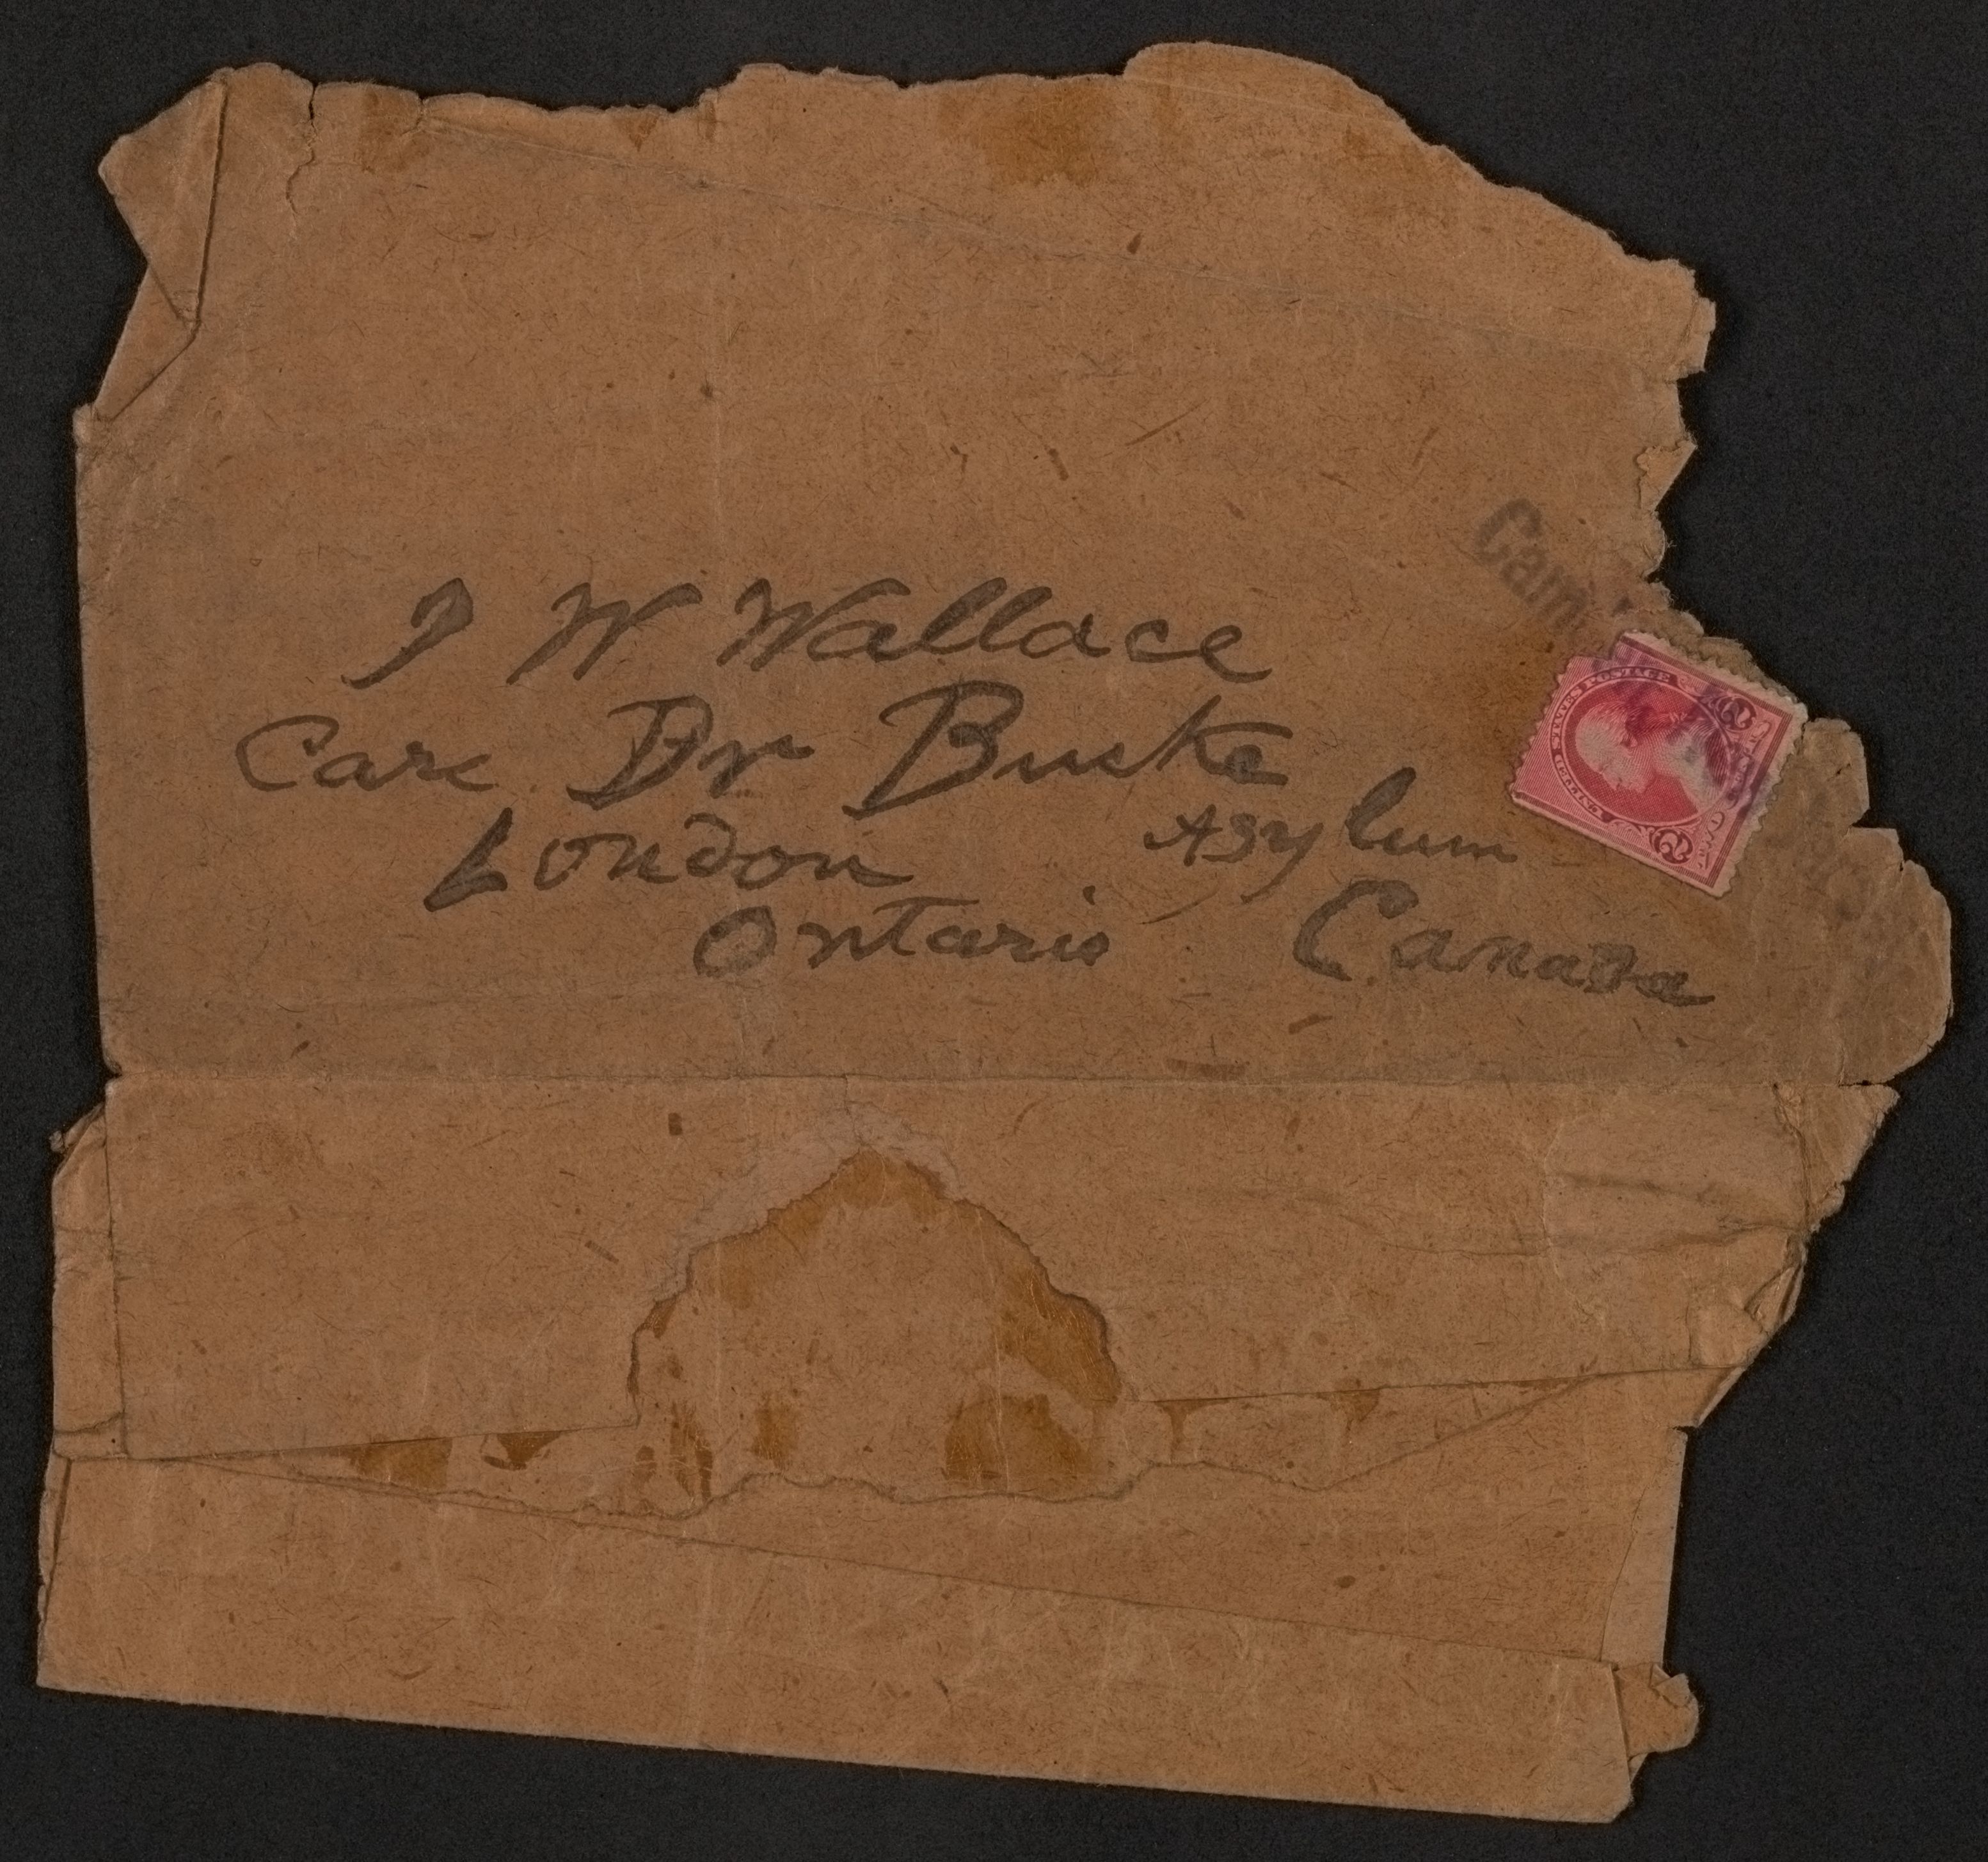 Cam
J W Wallace
Care Dr Bucke
UNITED STATES POSTAGE
2 2
London Asylum
Ontario Canada